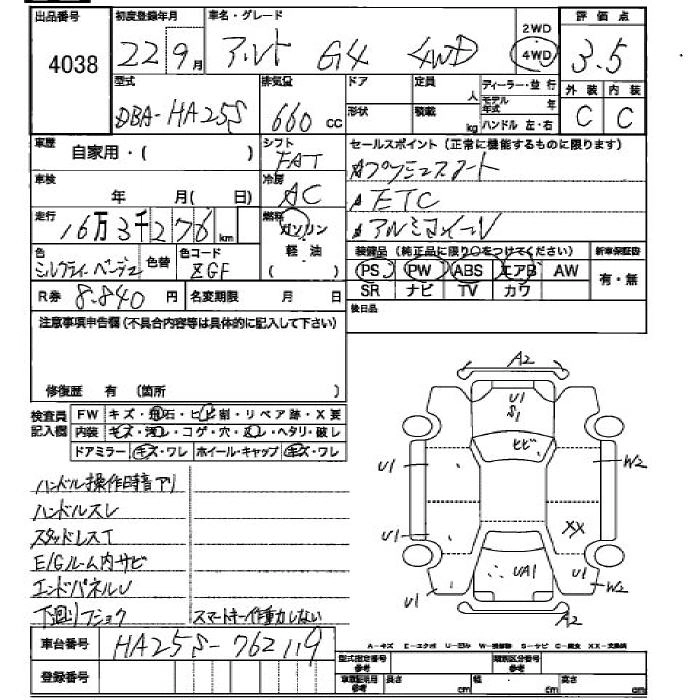 出品番号 初度登録年月 車名・グレード 2WD 評価点
4038 22 9月 アルト G4 4WD 4WD 3.5
型式 排気量 ドア 定員 人 ディーラー・並行 外装 内装
DBA-HA25S 660cc 形状 積載 kg モデル年式 年 ハンドル 左・右 C C
車歴 自家用・( ) シフト FAT セールスポイント (正常に機能するものに限ります)
車検 年 月( 日) 冷房 AC ☆プッシュスタート
☆ETC
走行 16万3千276km 燃料 ガソリン ☆アルミホイール
色 ミルクティーベージュ 色替 色コード ZGF 軽油 ( )
装備品 (純正品に限り○をつけてください) 新車保証書
PS PW ABS エアB AW 有・無
R券 8.840円 名変期限 月 日 SR ナビ TV カワ
注意事項申告欄 (不具合内容等は具体的に記入して下さい) 後日品
修復歴 有 (箇所 )
検査員記入欄 FW キズ・飛石・ヒビ割・リペア跡・X要
内装 キズ・汚レ・コゲ・穴・ ・ヘタリ・破し
ドアミラー キズ・ワレ ホイール・キャップ キズ・ワレ
A2
U1
S1
ヒビ
U1 W2
U1 XX
UA1
U1 U1 W2
A2
ハンドル操作時音アリ
ハンドルスレ
スタッドレスT
E/Gルーム内サビ
エンドパネルU
下廻りフショク スマートキー作動しない
車台番号 HA25S-762119
A-キズ E-エクボ U-凹ミ W-補修跡 S-サビ C-腐食 XX-交換済
登録番号 型式指定番号 参考 類別区分番号 参考
車庫証明用 参考 長さ cm 幅 cm 高さ cm